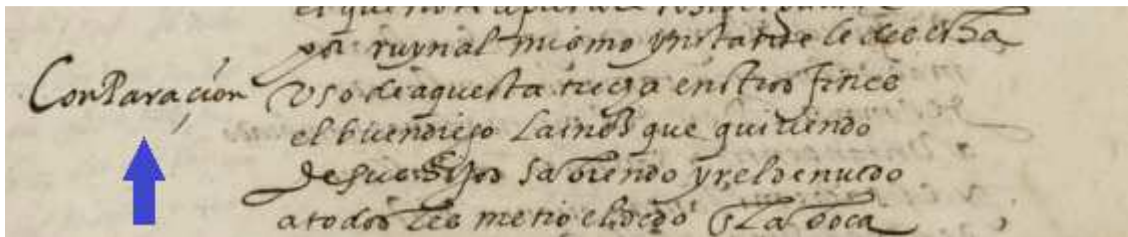 por ruyn al mismo ynstante le desecha
ConParación
Uso de aquesta treça en otros fines
el buen diego Laines que quiriendo
de sus Hijos sabiendo yr el denuedo
a todos les metio el dedo en la boca